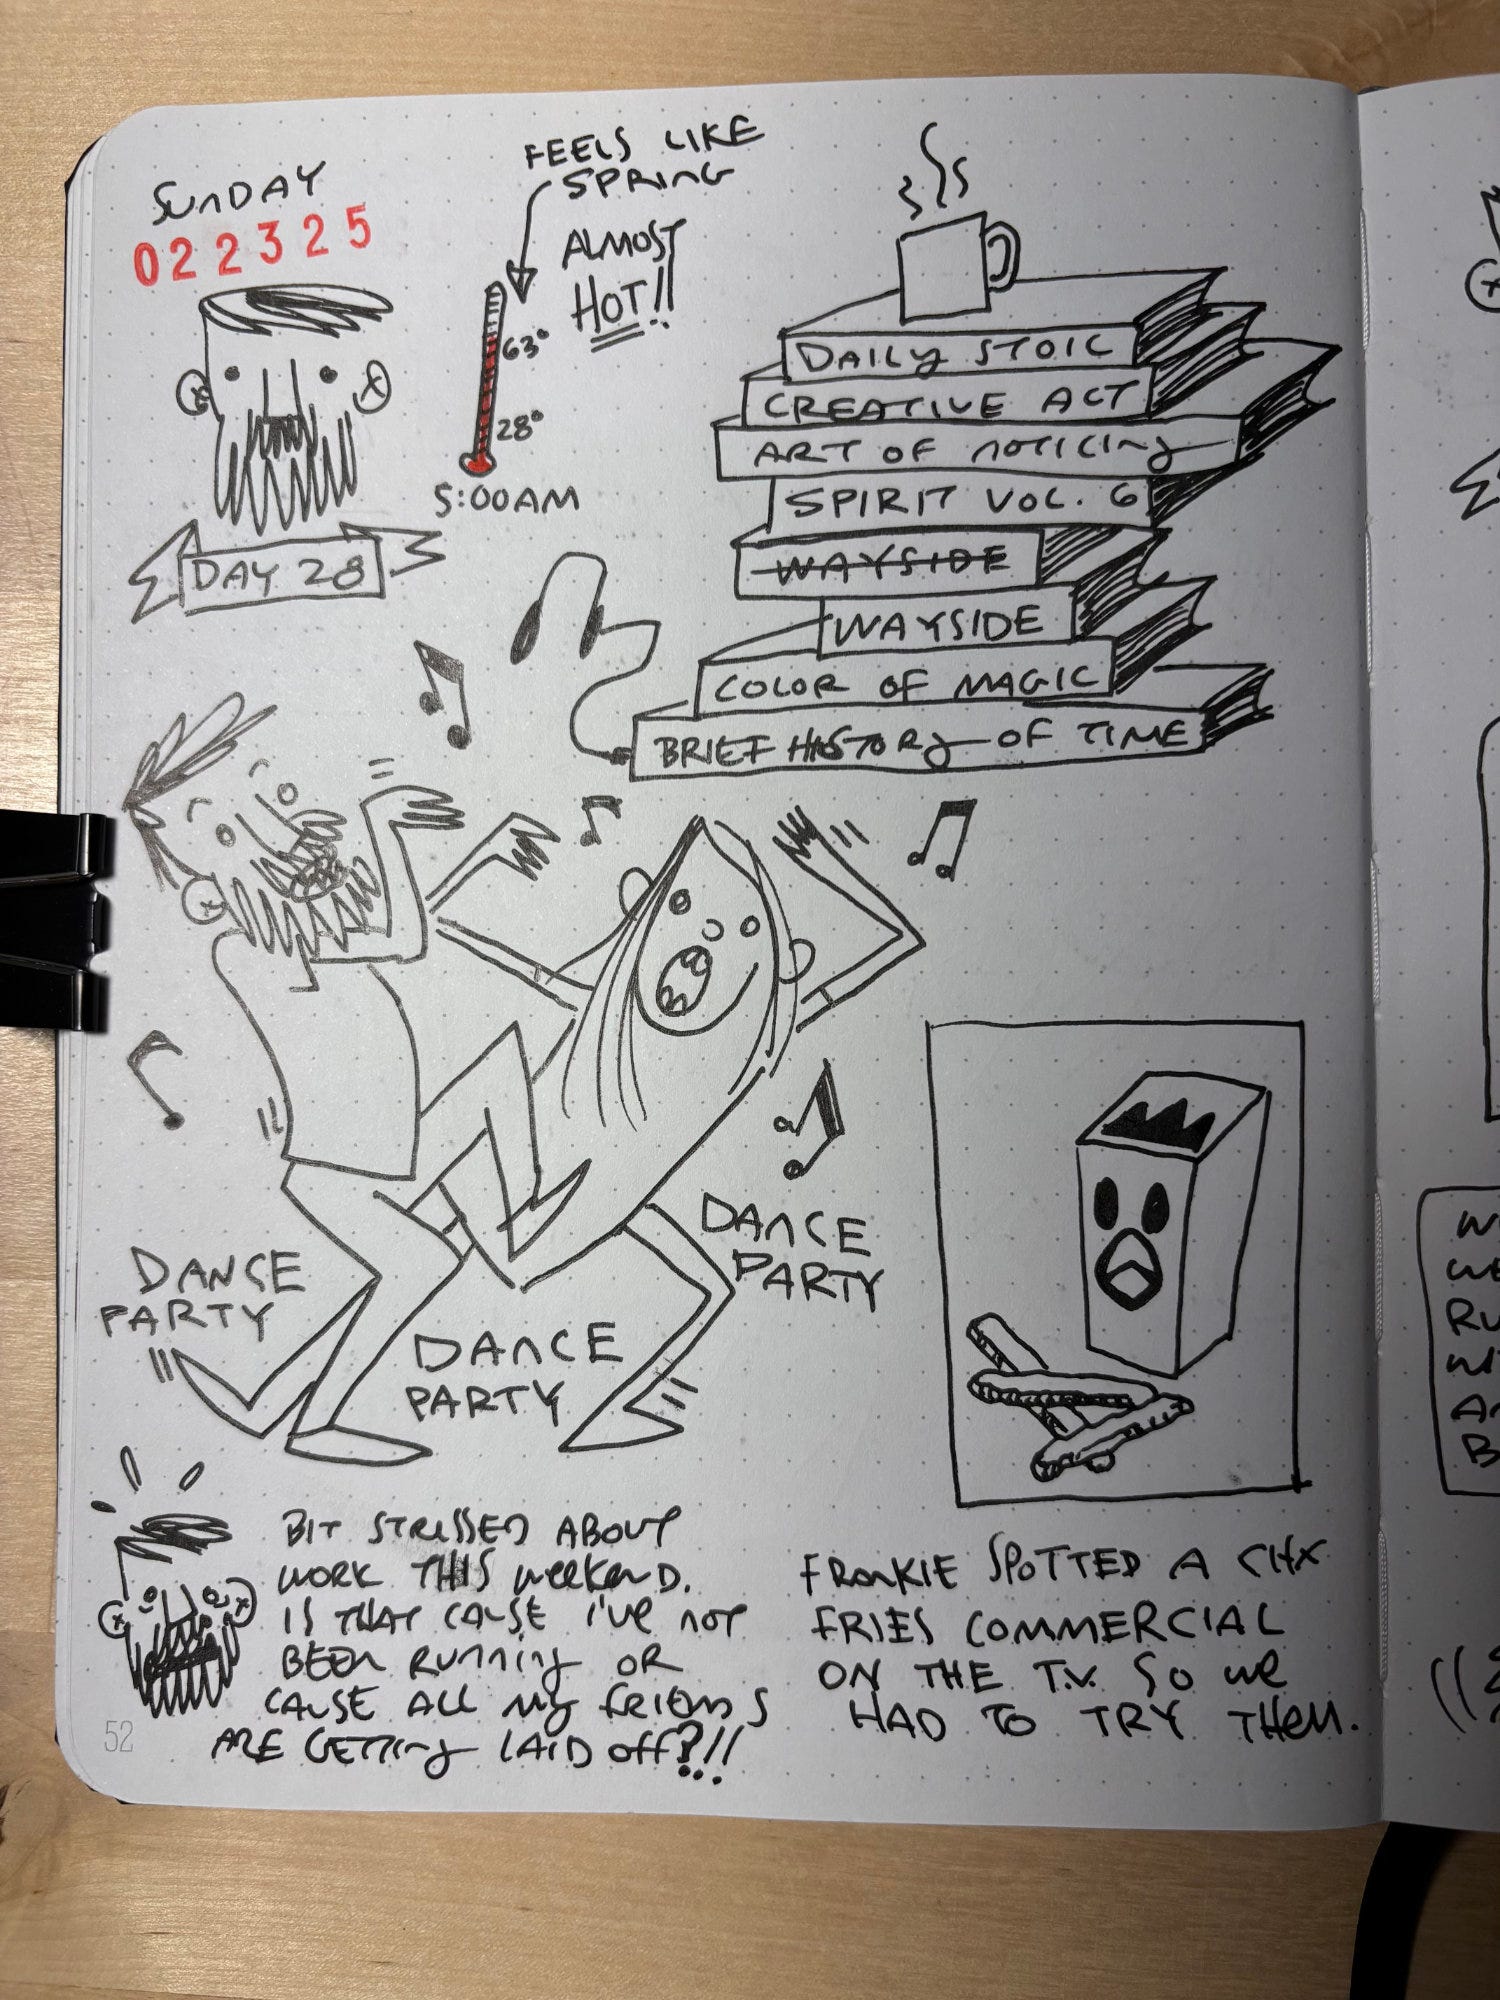 SUNDAY
022325
FEELS LIKE
SPRING
ALMOST
HOT!!
63°
28°
5:00AM
DAY 28
DAILY STOIC
CREATIVE ACT
ART OF NOTICING
SPIRIT VOL. 6
WAYSIDE
WAYSIDE
COLOR OF MAGIC
BRIEF HISTORY OF TIME
DANCE
PARTY
DANCE
PARTY
DANCE
PARTY
BIT STRESSED ABOUT
WORK THIS WEEKEND.
IS THAT CAUSE I'VE NOT
BEEN RUNNING OR
CAUSE ALL MY FRIENDS
ARE GETTING LAID OFF?!!
FRANKIE SPOTTED A CHX
FRIES COMMERCIAL
ON THE T.V. SO WE
HAD TO TRY THEM.
52